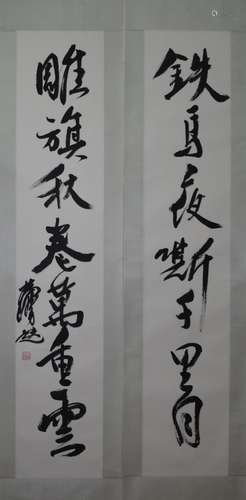 鉄馬夜嘶千里月
雕旗秋卷萬重雲